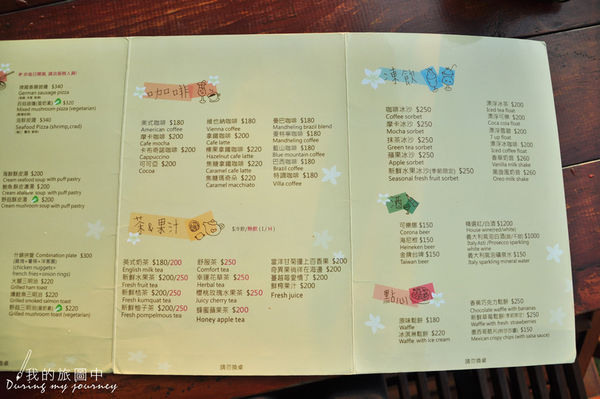 德國香腸披薩 $340
German sausage pizza
$320
Mixed mushroom pizza (vegetarian)
海鮮披薩 $340
Seafood Pizza (shrimp,crad)
海鮮酥皮濃湯 $200
Cream seafood soup with puff pastry
鮑魚酥皮濃湯 $200
野菇酥皮濃湯 $200
Cream mushroom soup with puff pastry
什錦拼盤 Combination plate $300
(chicken nuggets+
french fries+onion rings)
火腿三明治 $220
Grilled ham toast
燻鮭魚三明治 $220
Grilled smoked salmon toast
野菇三明治 $220
Grilled mushroom toast (vegetarian)
咖啡
美式咖啡 $180
American coffee
摩卡咖啡 $200
Cafe mocha
卡布奇諾 $200
Cappuccino
可可亞 $200
Cocoa
維也納咖啡 $180
Vienna coffee
拿鐵咖啡 $200
Cafe latte
榛果拿鐵咖啡 $220
Hazelnut cafe latte
焦糖拿鐵咖啡 $220
Caramel cafe latte
焦糖瑪奇朵 $220
Caramel macchiato
曼巴咖啡 $180
Mandheling brazil blend
曼特寧咖啡 $180
Mandheling coffee
藍山咖啡 $180
Blue mountain coffee
巴西咖啡 $180
Brazil coffee
特調咖啡 $180
Villa coffee
茶&果汁
$冷飲/熱飲 (I/H)
英式奶茶 $180/200
English milk tea
新鮮水果茶 $200/250
Fresh fruit tea
新鮮桔茶 $200/250
Fresh kumquat tea
新鮮柚子茶 $200/250
Fresh pompelmous tea
舒服茶 $250
Comfort tea
幸運花草茶 $250
Herbal tea
櫻桃玫瑰水果茶 $250
Juicy cherry tea
蜂蜜蘋果茶 $200
Honey apple tea
當洋甘菊遇上百香果 $200
奇異果徜徉在海邊 $200
蔓越莓愛情了 $200
鮮榨果汁 $200
Fresh juice
請勿換桌
凍飲
咖啡冰沙 $250
Coffee sorbet
摩卡冰沙 $250
Mocha sorbet
抹茶冰沙 $250
Green tea sorbet
蘋果冰沙 $250
Apple sorbet
新鮮水果冰沙(季節限定) $250
Seasonal fresh fruit sorbet
漂浮冰茶 $200
Iced tea float
漂浮可樂 $200
Coca cola float
漂浮雪碧 $200
7 up float
漂浮冰咖啡 $200
Iced coffee float
香草奶昔 $260
Vanilla milk shake
黑旋風奶昔 $260
Oreo milk shake
酒
可樂娜 $150
Corona beer
海尼根 $150
Heineken beer
金牌台啤 $150
Taiwan beer
精選紅/白酒 $1200
House wine(red/white)
$1000
Italy.Asti /Prosecco sparkling
white wine
義大利氣泡礦泉水 $150
Italy sparkling mineral water
點心
原味鬆餅 $180
Waffle
冰淇淋鬆餅 $220
Waffle with ice cream
香蕉巧克力鬆餅 $250
Chocolate waffle with bananas
新鮮草莓鬆餅(季節限定) $250
Waffle with fresh strawberries
$150
Mexican crispy chips (with salsa sauce)
請勿換桌
我的旅圖中
During my journey